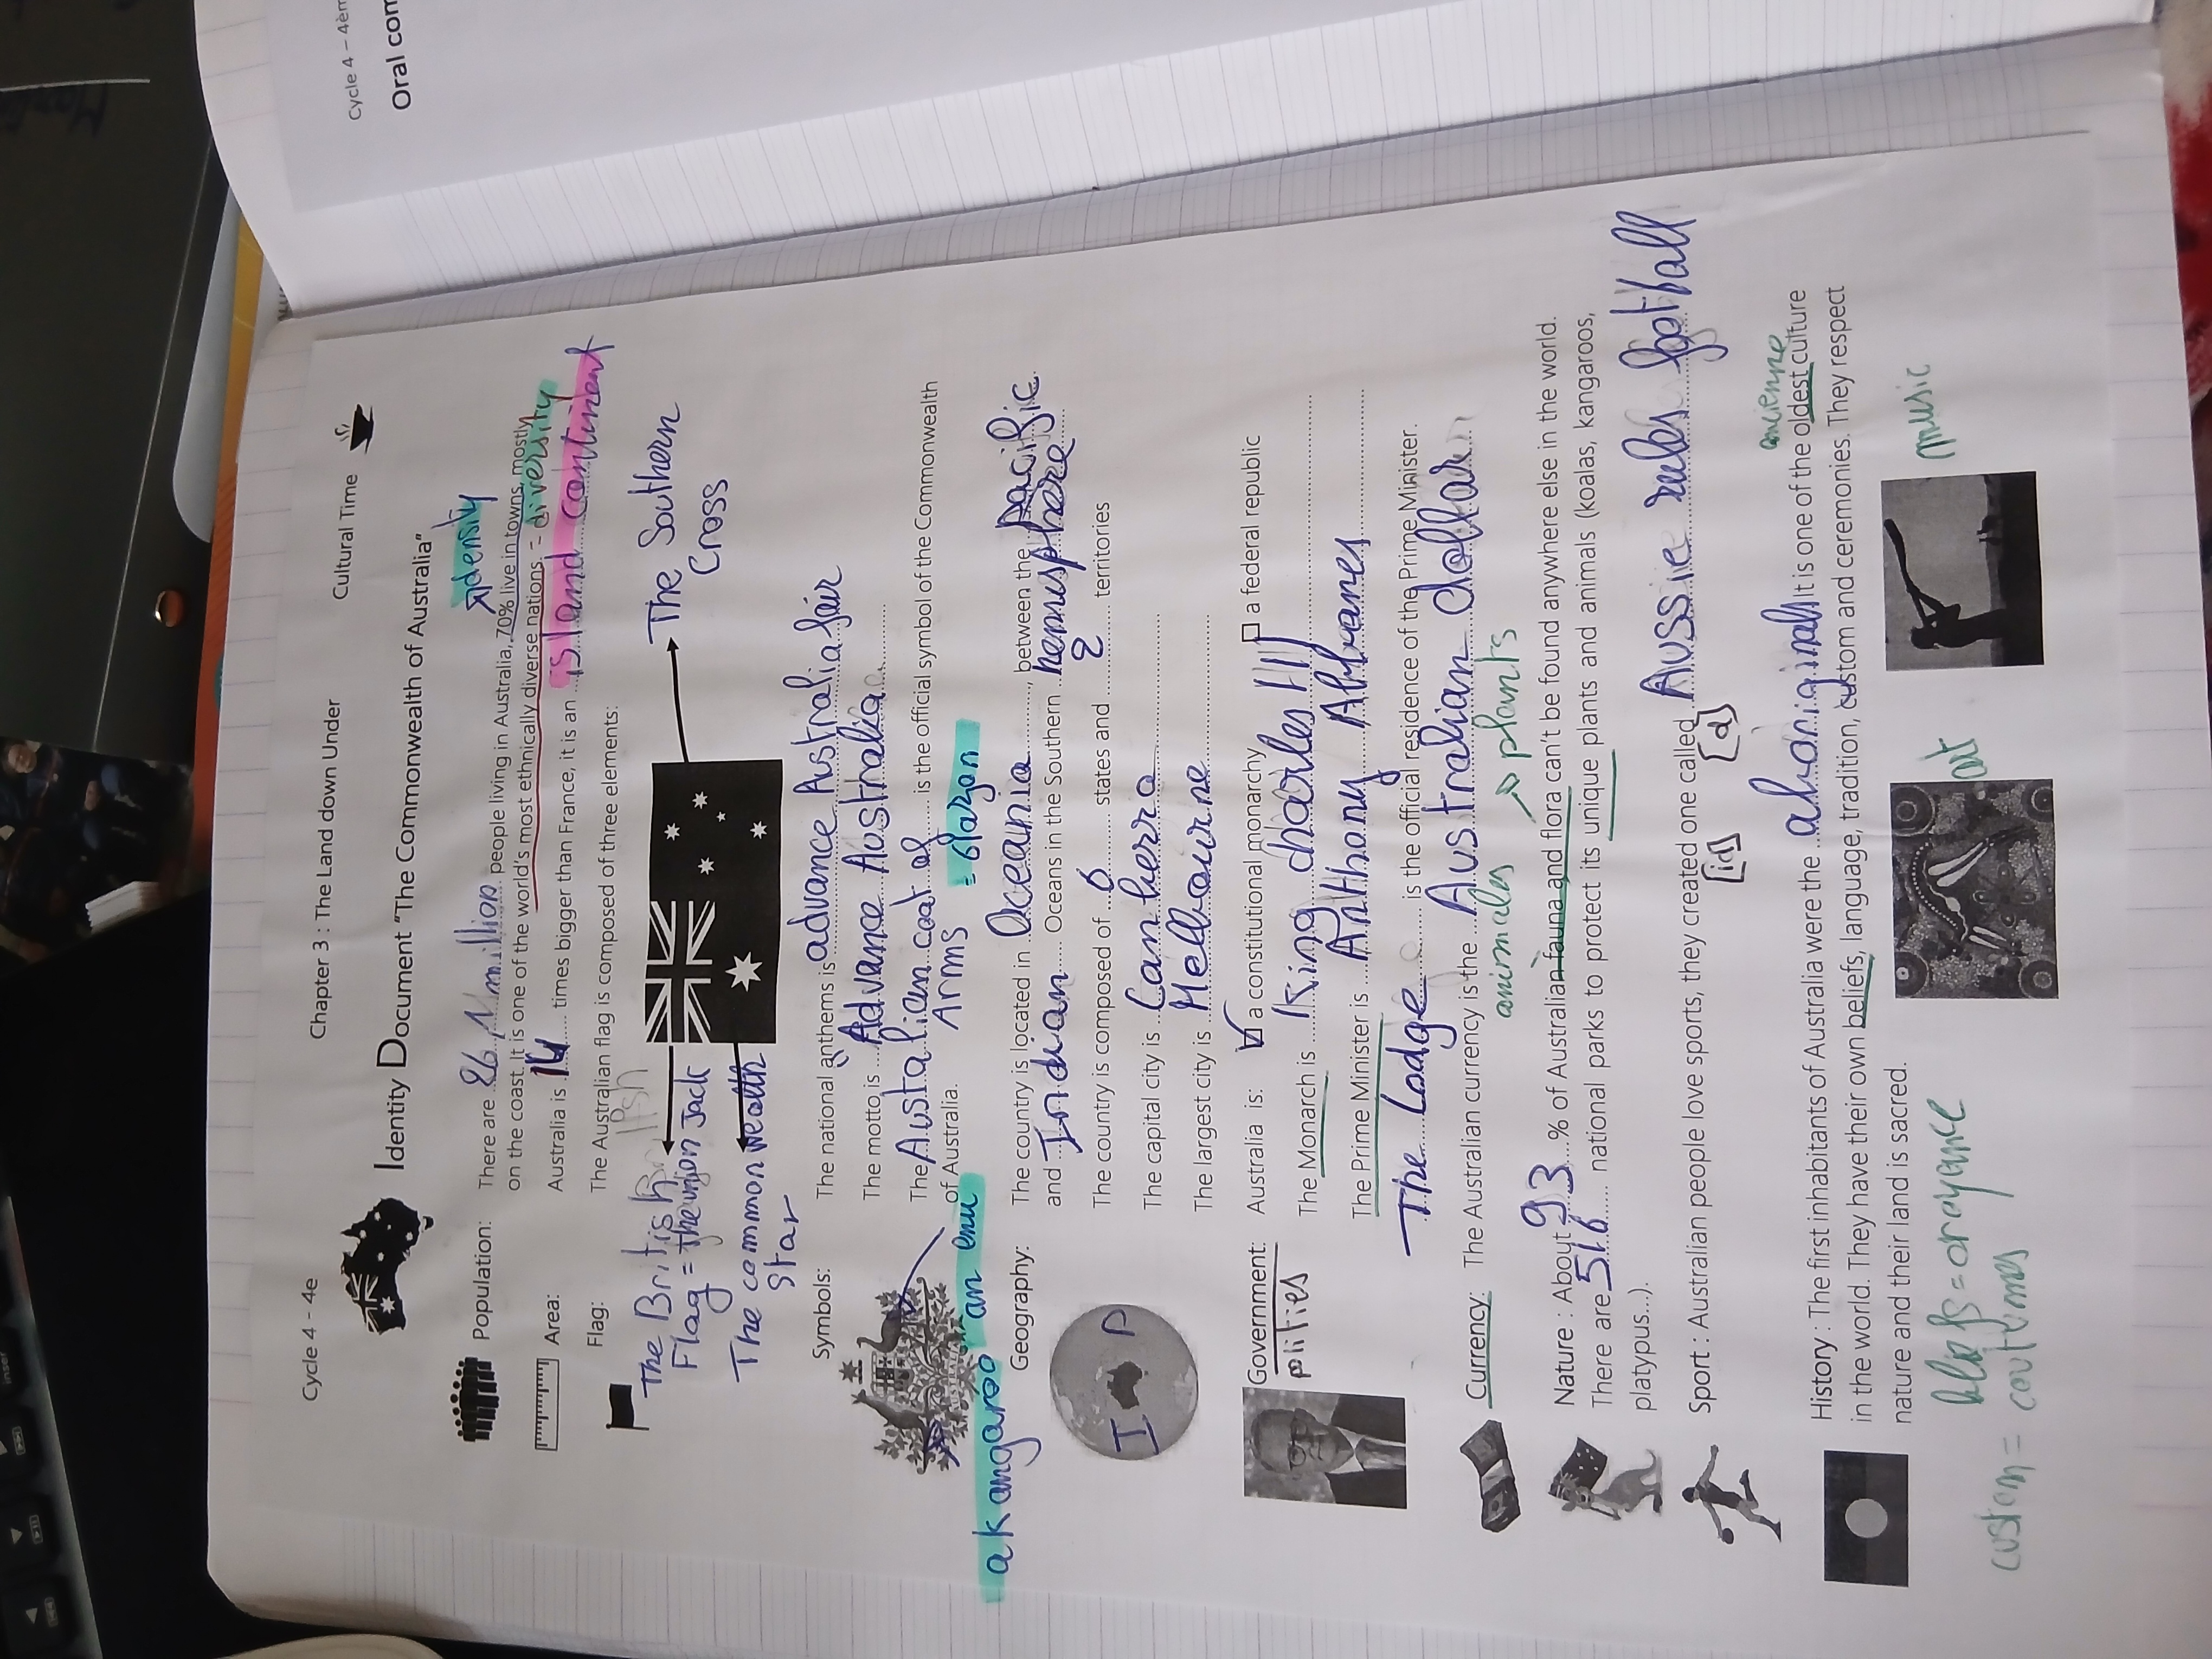 Cycle 4 - 4e
Chapter 3 : The Land down Under
Cultural Time
Identity Document "The Commonwealth of Australia"
↗density
Population: There are 26 million people living in Australia, 70% live in towns, mostly
on the coast. It is one of the world's most ethnically diverse nations. = diversity
Area: Australia is 14 times bigger than France, it is an island continent
Flag: The Australian flag is composed of three elements:
The British
Flag = The union Jack
The commonwealth
Star
→ The Southern
Cross
Symbols: The national anthems is advance Australia fair
The motto is Advance Australia
The Austalian coat of is the official symbol of the Commonwealth
of Australia. Arms = blazon
a kangaroo an emu
Geography: The country is located in Oceania, between the pacific
and Indian Oceans in the Southern hemisphere
The country is composed of 6 states and 2 territories
The capital city is Canberra
The largest city is Melbourne
I P
Government: Australia is: ☑ a constitutional monarchy ☐ a federal republic
politics
The Monarch is King charles III
The Prime Minister is Anthony Albanes
The Lodge is the official residence of the Prime Minister.
Currency: The Australian currency is the Australian dollar
animales → plants
Nature : About 93 % of Australian fauna and flora can't be found anywhere else in the world.
There are 516 national parks to protect its unique plants and animals (koalas, kangaroos,
platypus...).
Sport : Australian people love sports, they created one called Aussie rules football
[id] [a]
ancienne
History : The first inhabitants of Australia were the aboriginals It is one of the oldest culture
in the world. They have their own beliefs, language, tradition, custom and ceremonies. They respect
nature and their land is sacred.
art
music
beliefs = croyance
custom = coutumes
Cycle 4 - 4èm
Oral com
inser